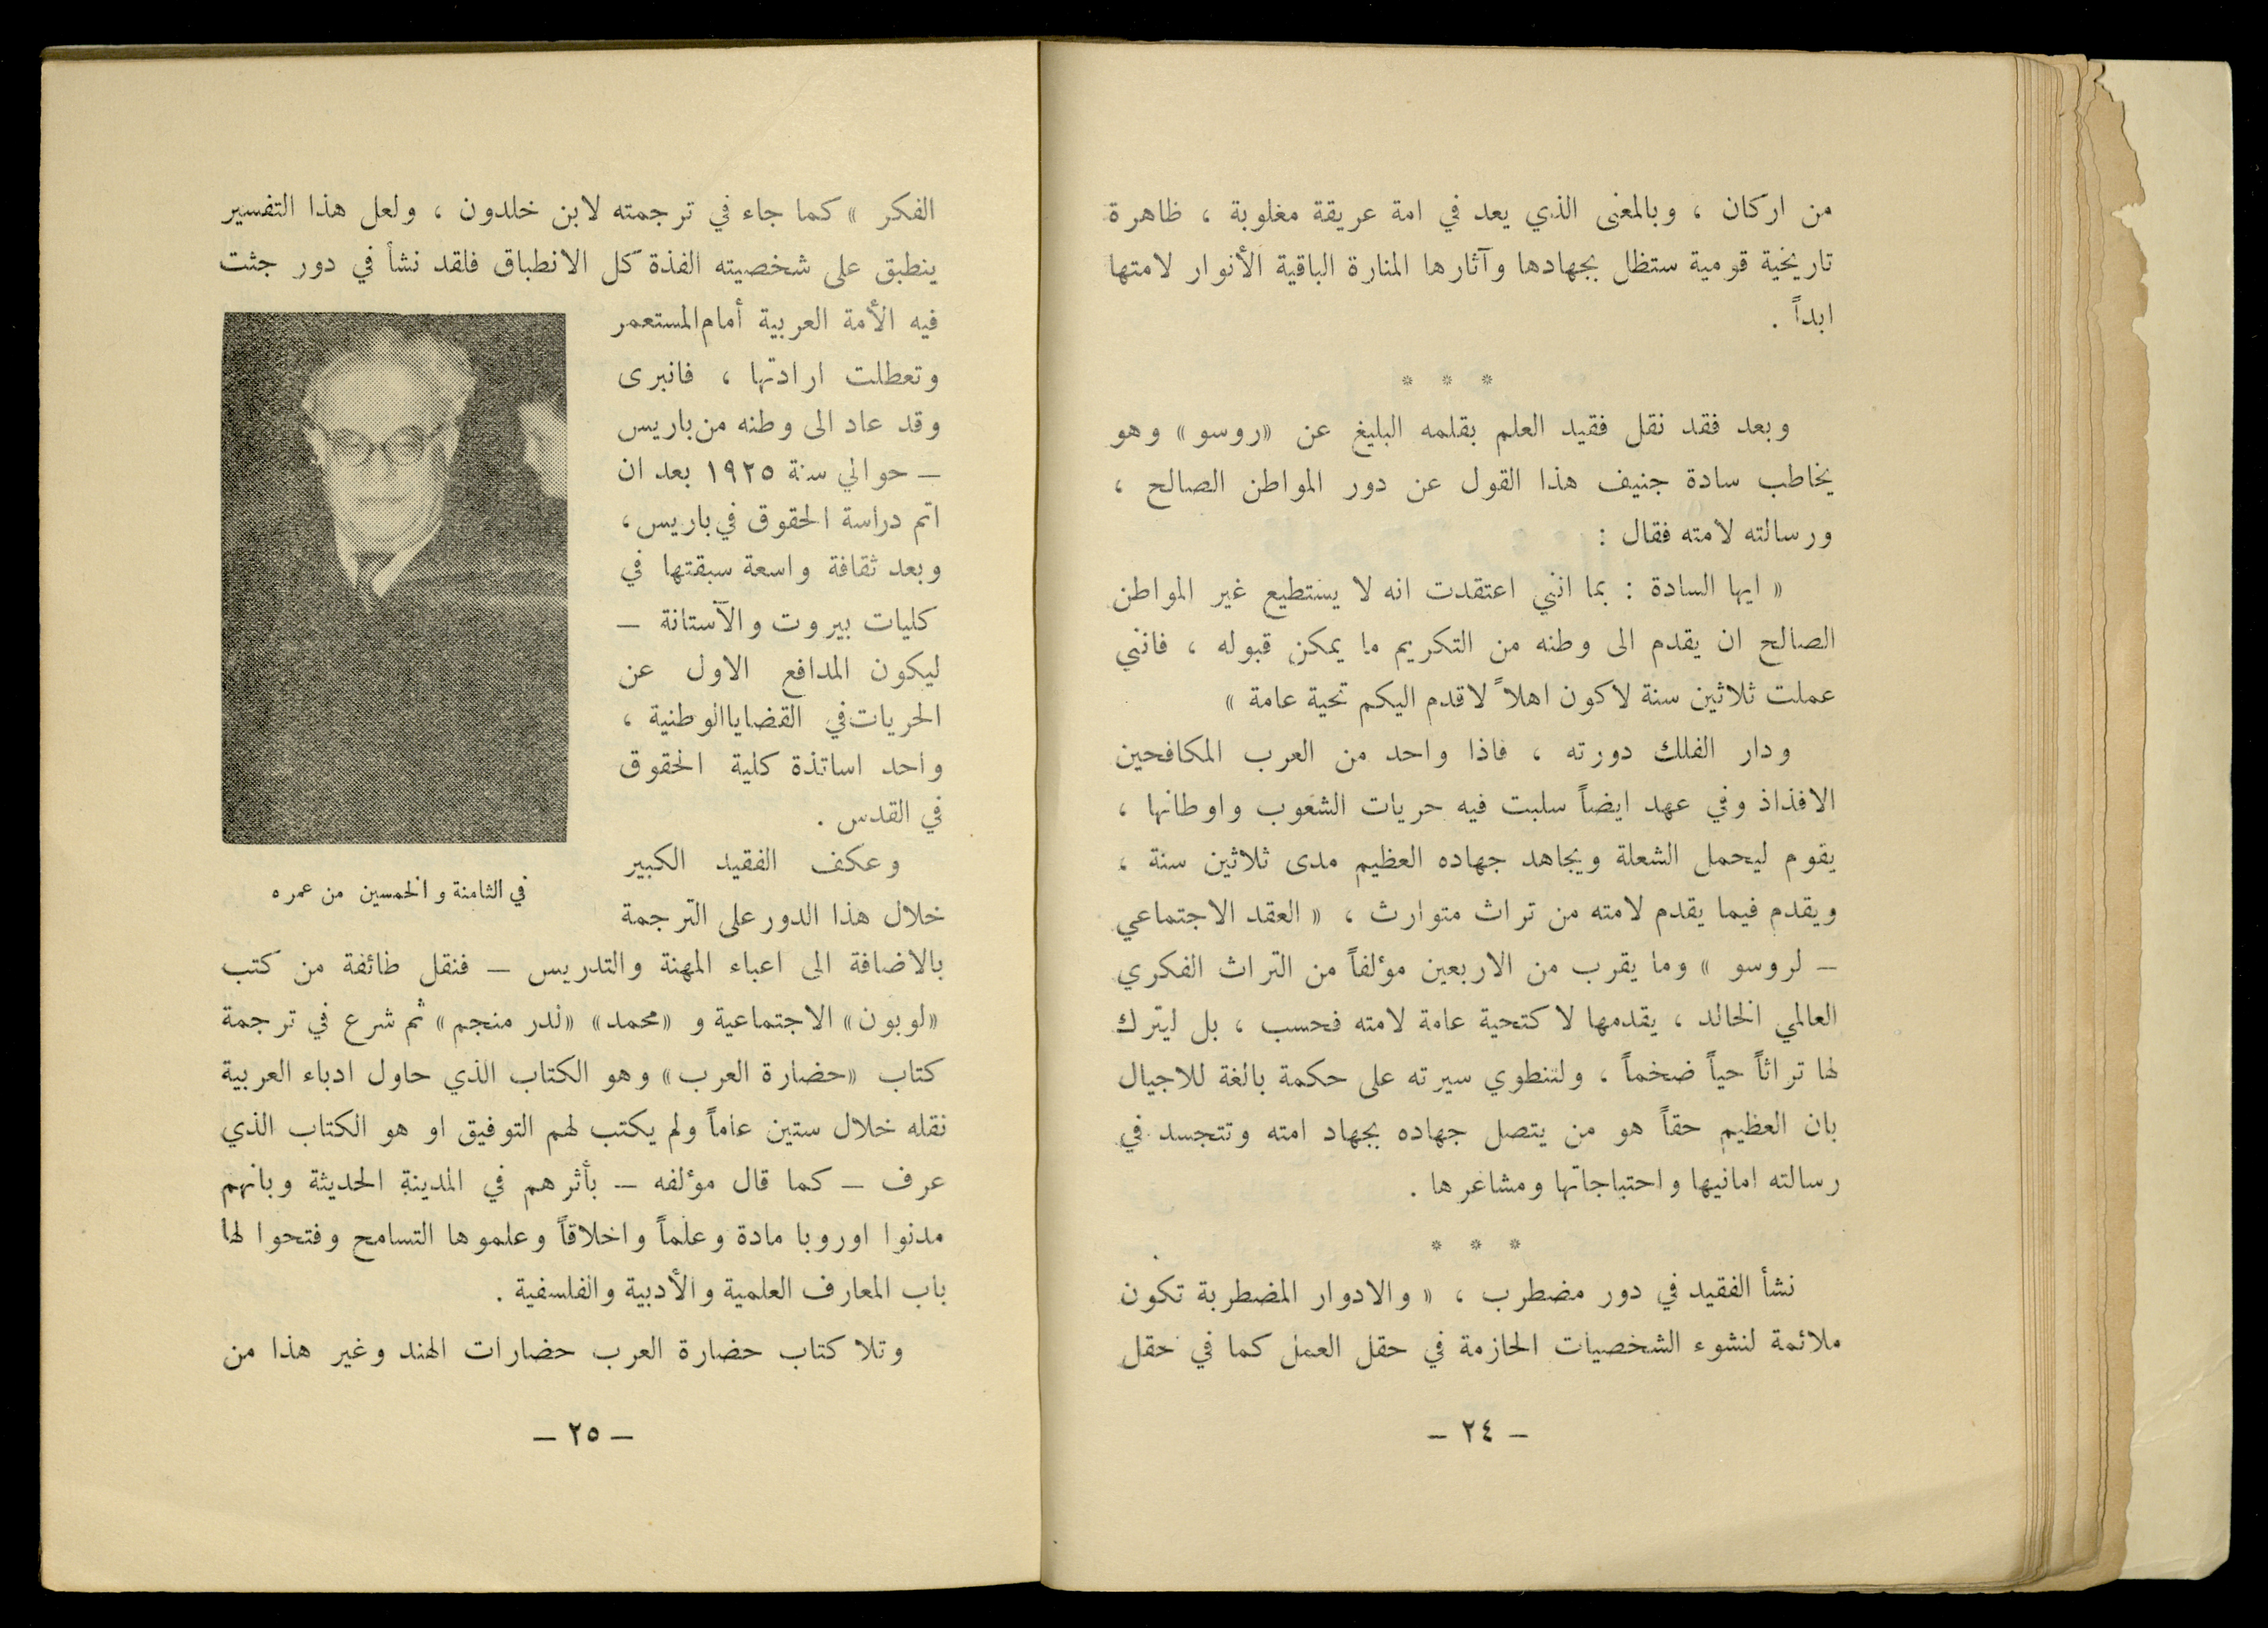 من اركان ، وبالمعنى الذي يعد في امة عريقة مغلوبة ، ظاهرة
تاريخية قومية ستظل بجهادها وآثارها المنارة الباقية الأنوار لامتها
ابداً .
* * *
وبعد فقد نقل فقيد العلم بقلمه البليغ عن «روسو» وهو
يخاطب سادة جنيف هذا القول عن دور المواطن الصالح ،
ورسالته لامته فقال :
« ايها السادة : بما انني اعتقدت انه لا يستطيع غير المواطن
الصالح ان يقدم الى وطنه من التكريم ما يمكن قبوله ، فانني
عملت ثلاثين سنة لاكون اهلاً لاقدم اليكم تحية عامة »
ودار الفلك دورته ، فاذا واحد من العرب المكافحين
الافذاذ وفي عهد ايضاً سلبت فيه حريات الشعوب واوطانها ،
يقوم ليحمل الشعلة ويجاهد جهاده العظيم مدى ثلاثين سنة ،
ويقدم فيما يقدم لامته من تراث متوارث ، « العقد الاجتماعي
– لروسو » وما يقرب من الاربعين مؤلفاً من التراث الفكري
العالمي الخالد ، يقدمها لا كتحية عامة لامته فحسب ، بل ليترك
لها تراثاً حياً ضخماً ، ولتنطوي سيرته على حكمة بالغة للاجيال
بان العظيم حقاً هو من يتصل جهاده بجهاد امته وتتجسد في
رسالته امانيها واحتياجاتها ومشاعرها .
* * *
نشأ الفقيد في دور مضطرب ، « والادوار المضطربة تكون
ملائمة لنشوء الشخصيات الحازمة في حقل العمل كما في حقل
– ٢٤ –
الفكر » كما جاء في ترجمته لابن خلدون ، ولعل هذا التفسير
ينطبق على شخصيته الفذة كل الانطباق فلقد نشأ في دور جثت
فيه الأمة العربية أمام المستعمر
وتعطلت ارادتها ، فانبرى
وقد عاد الى وطنه من باريس
– حوالي سنة ١٩٢٥ بعد ان
اتم دراسة الحقوق في باريس،
وبعد ثقافة واسعة سبقتها في
كليات بيروت والآستانة –
ليكون المدافع الاول عن
الحريات في القضايا الوطنية ،
واحد اساتذة كلية الحقوق
في القدس .
وعكف الفقيد الكبير
خلال هذا الدور على الترجمة
في الثامنة والخمسين من عمره
بالاضافة الى اعباء المهنة والتدريس – فنقل طائفة من كتب
«لوبون» الاجتماعية و «محمد» «لدر منجم» ثم شرع في ترجمة
كتاب «حضارة العرب» وهو الكتاب الذي حاول ادباء العربية
نقله خلال ستين عاماً ولم يكتب لهم التوفيق او هو الكتاب الذي
عرف – كما قال مؤلفه – بأثرهم في المدينة الحديثة وبانهم
مدنوا اوروبا مادة وعلماً واخلاقاً وعلموها التسامح وفتحوا لها
باب المعارف العلمية والأدبية والفلسفية .
وتلا كتاب حضارة العرب حضارات الهند وغير هذا من
– ٢٥ –